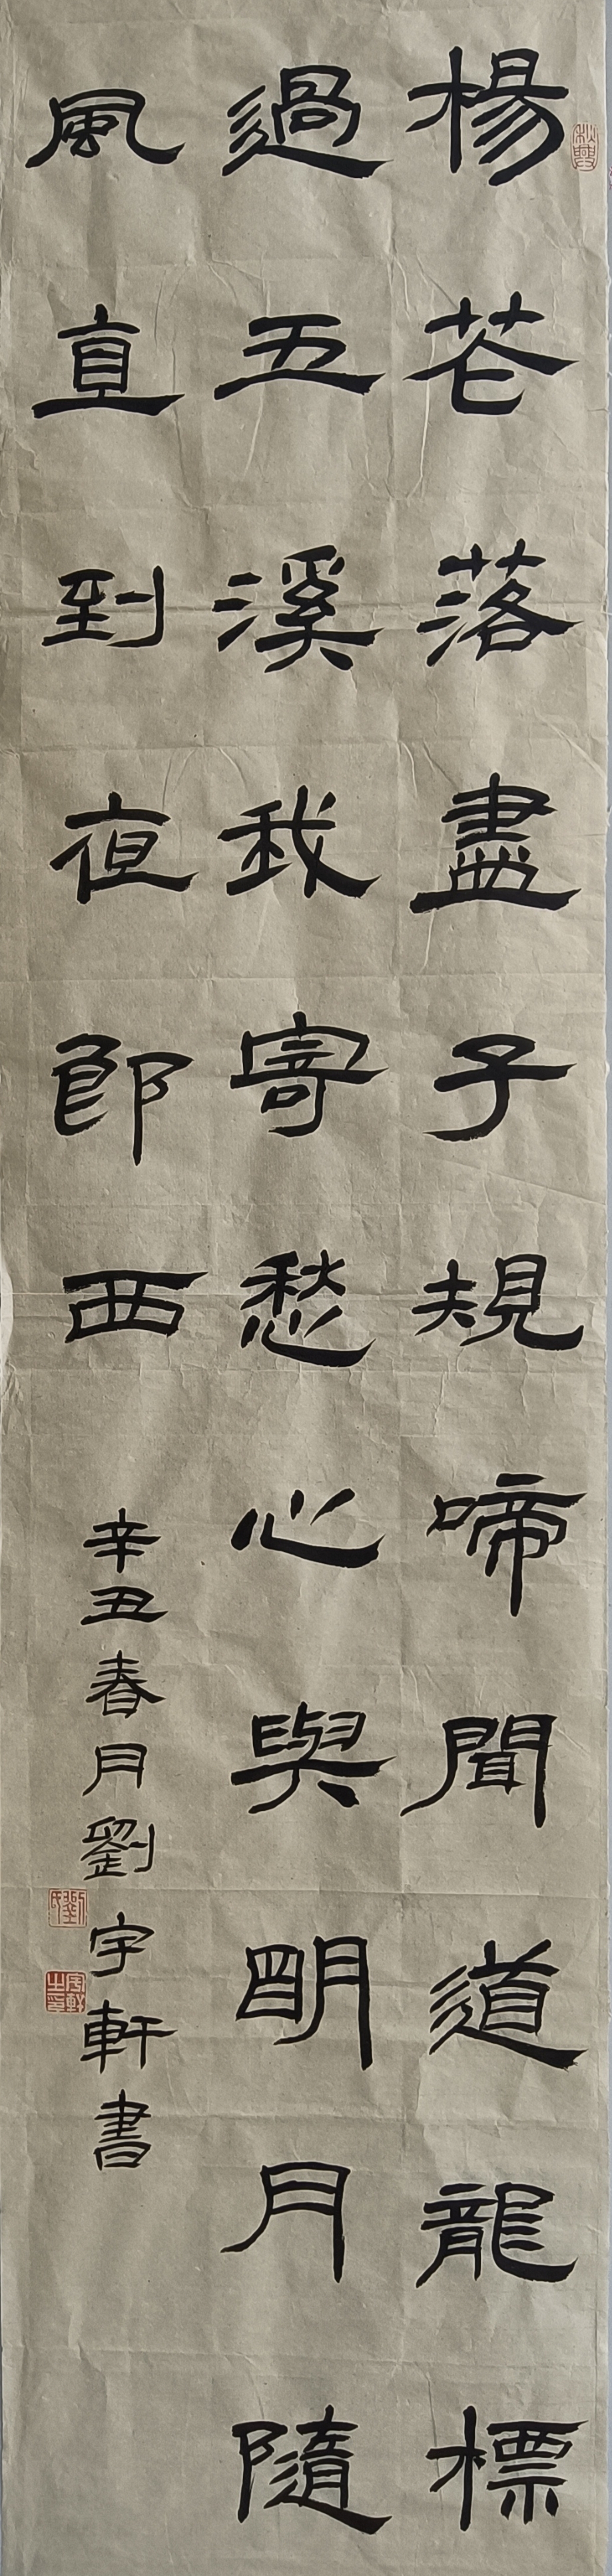 楊花落盡子規啼聞道龍標
過五溪我寄愁心與明月隨
風直到夜郎西
辛丑春月劉宇軒書